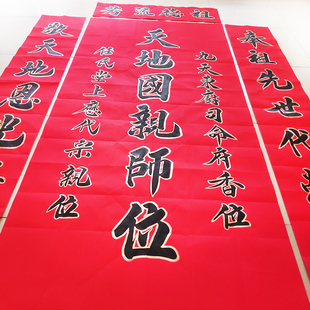 祖德流芳
奉祖先世代
九天東廚司命府香位
天地國親師位
任氏堂上歷代宗親位
敬天地恩光